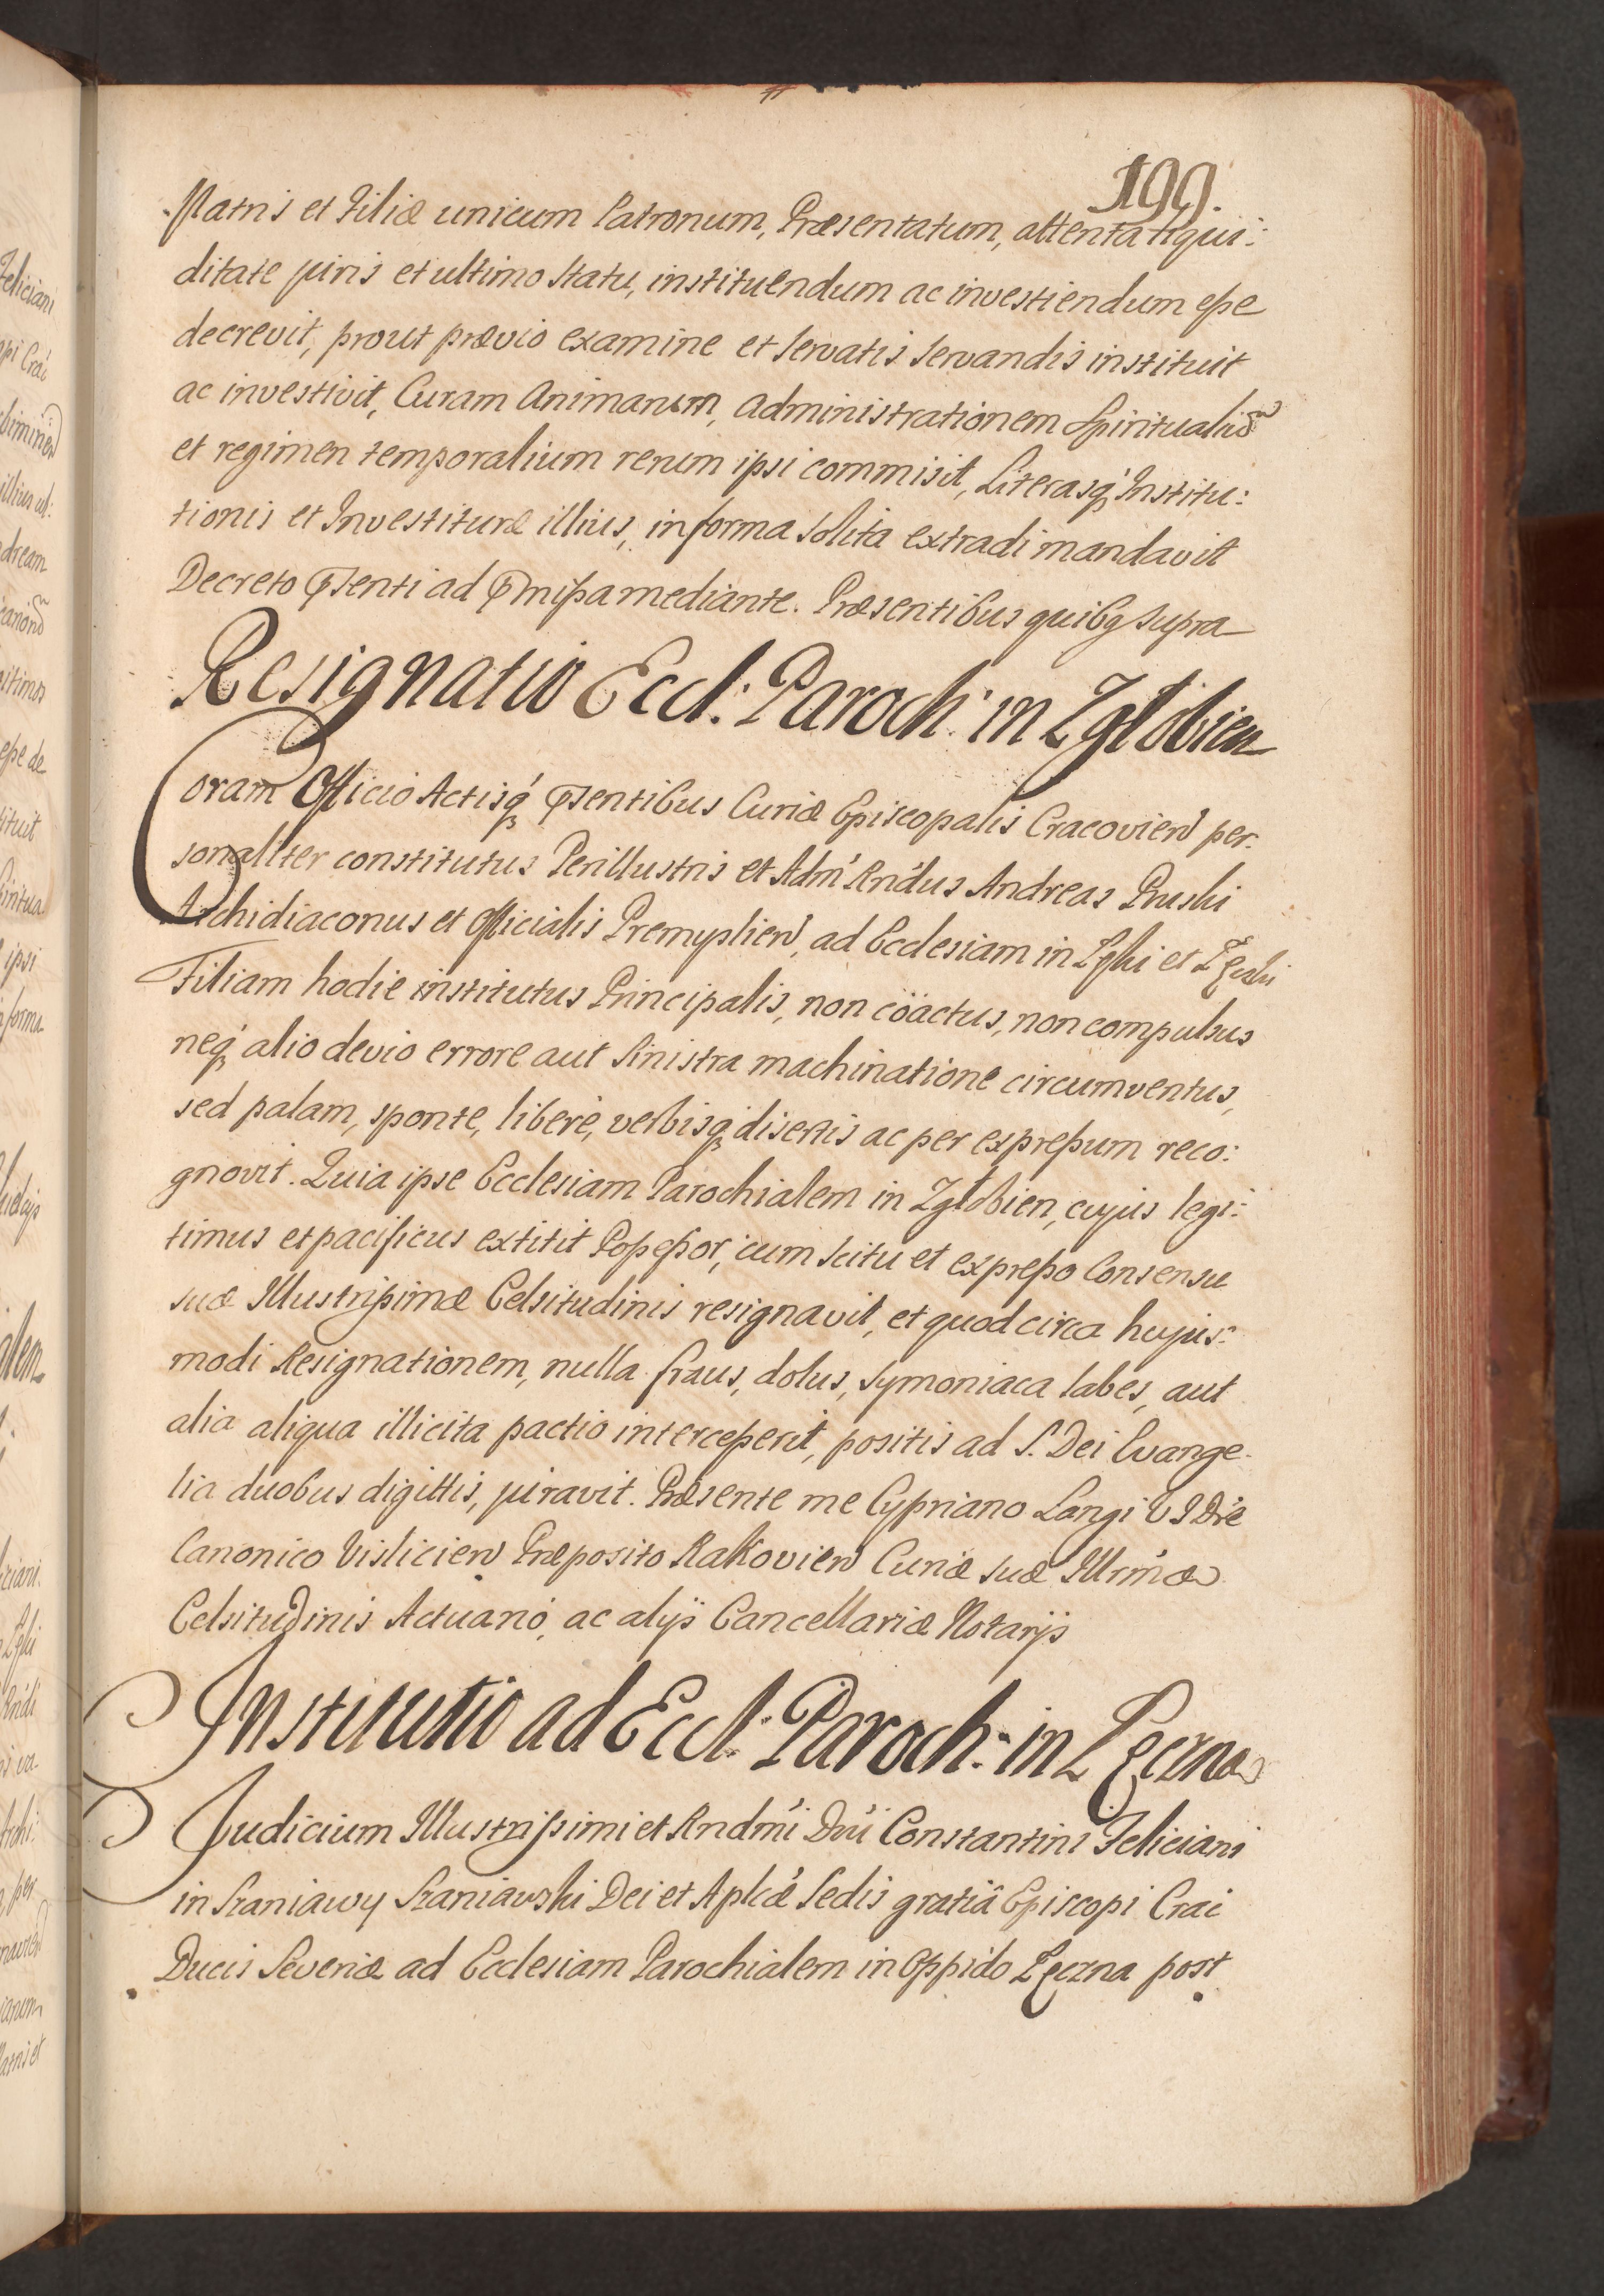 199.
Matris et Filiæ unicum Patronum, Præsentatum, attenta liqui:
ditate juris et ultimo statu, instituendum ac investiendum esse
decrevit, prout prævio examine et servatis servandis instituit
ac investivit, Curam Animarum, administrationem Spiritualiũ
et regimen temporalium rerum ipsi commisit, Literasq́ Institu:
tionis et Investituræ illius, in forma solita extradi mandavit
Decreto p̃senti ad p̃missa mediante. Præsentibus quibq supra
Resignatio Eccl: Paroch: in Zgłobien
Coram Officio Actisq́ p̃sentibus Curiæ Episcopalis Cracovien per:
sonaliter constitutus Perillustris et Adm' Rńdus Andreas Pruski
Archidiaconus et Officialis Premyslien, ad Ecclesiam in et
Filiam hodie institutus Principalis, non cöactus, non compulsus
neq́ alio devio errore aut sinistra machinatione circumventus,
sed palam, sponte, liberè, verbisq disertis ac per expressum reco:
gnovit. Quia ipse Ecclesiam Parochialem in Zgłobien, cujus legi:
timus et pacificus extitit Possessor, cum scitu et expresso Consensu
suæ Illustrissimæ Celsitudinis resignavit, et quod circa hujus:
modi Resignationem, nulla fraus, dolus, symoniaca labes, aut
alia aliqua illicita pactio intercesserit, positis ad S. Dei Evange-
lia duobus digittis, juravit. Præsente me Cypriano Langi UJDre
Canonico Vislicien Præposito Rakovien Curiæ suæ Illrm̃æ
Celsitudinis Actuario, ac alijs Cancellariæ Notarijs
Institutio ad Eccl: Paroch: in Łęczna
Judicium Illustrissimi et Rndm̃i Dńi Constantini Feliciani
in Szaniawy Szaniawski Dei et Aplicæ Sedis gratiâ Episcopi Crac
Ducis Severiæ ad Ecclesiam Parochialem in Oppido Łęczna post